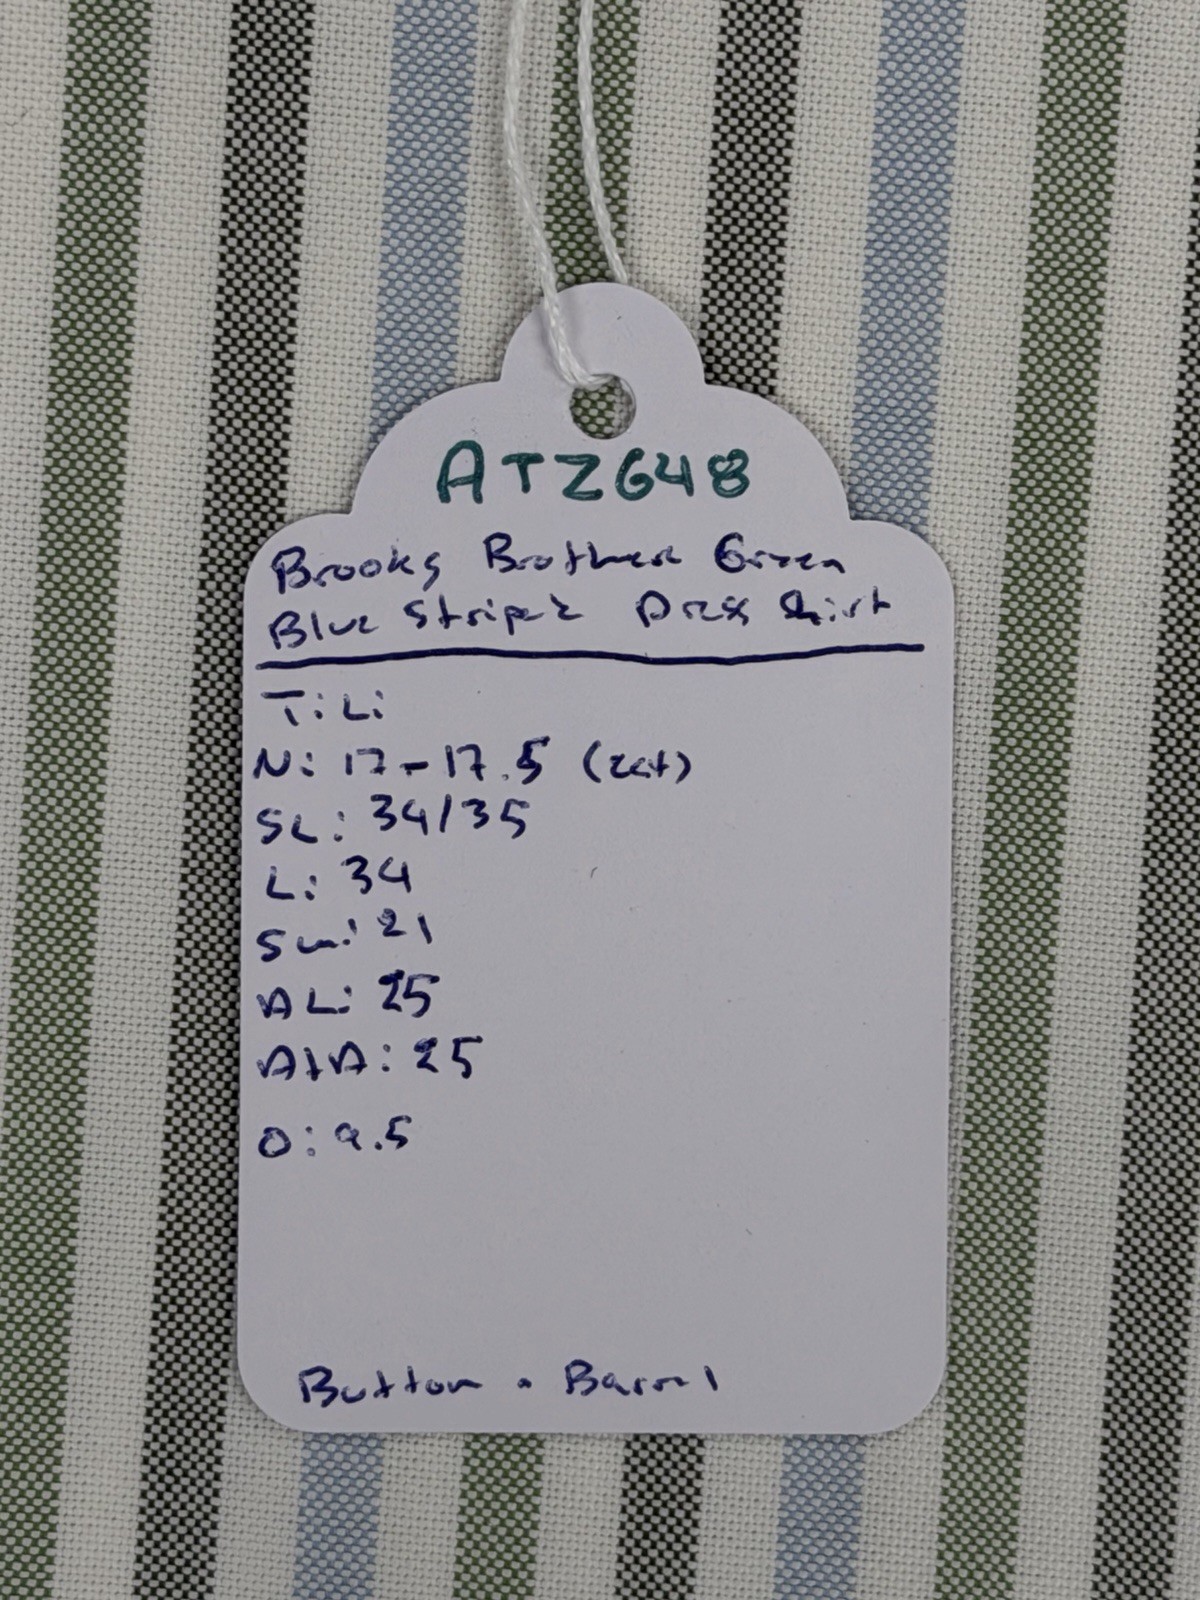 ATZ648
Brooks Brothers Green
Blue Stripe Dress Shirt
T: L:
N: 17-17.5 (est)
SL: 34/35
L: 34
Sw: 21
AL: 25
AtA: 25
O: 9.5
Button . Barrel